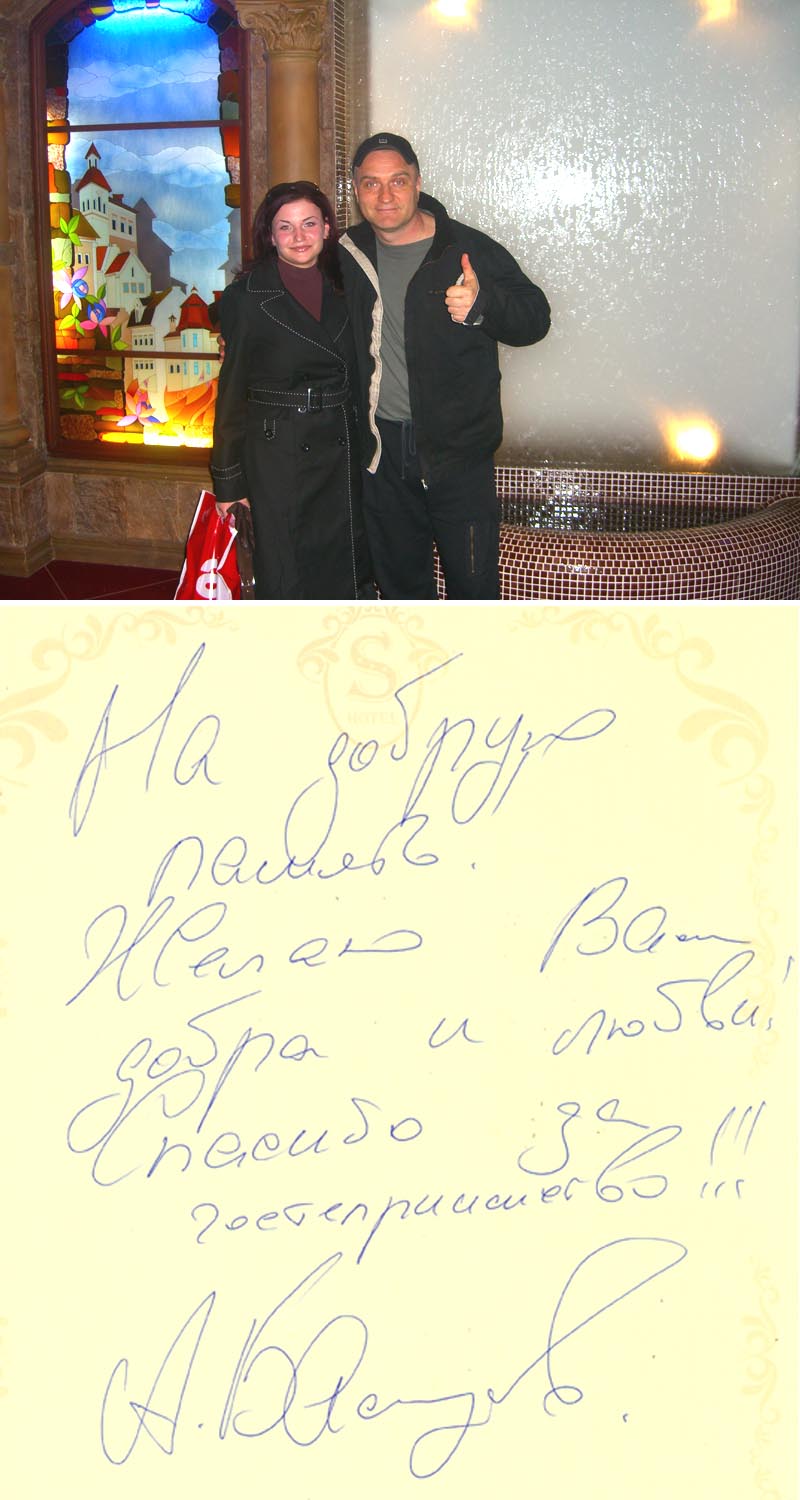 S
HOTEL
На добрую
память.
Желаю Вам
добра и любви!
Спасибо за
гостеприимство!!!
А.